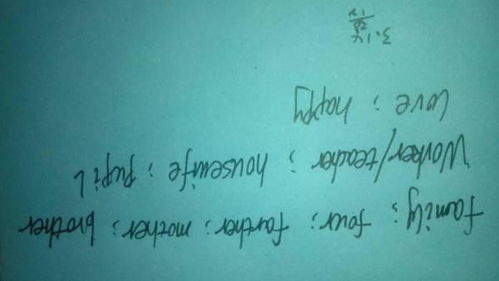 family: four: farther: mother: brother
Worker/teacher: housewife: Pupil
Love: happy